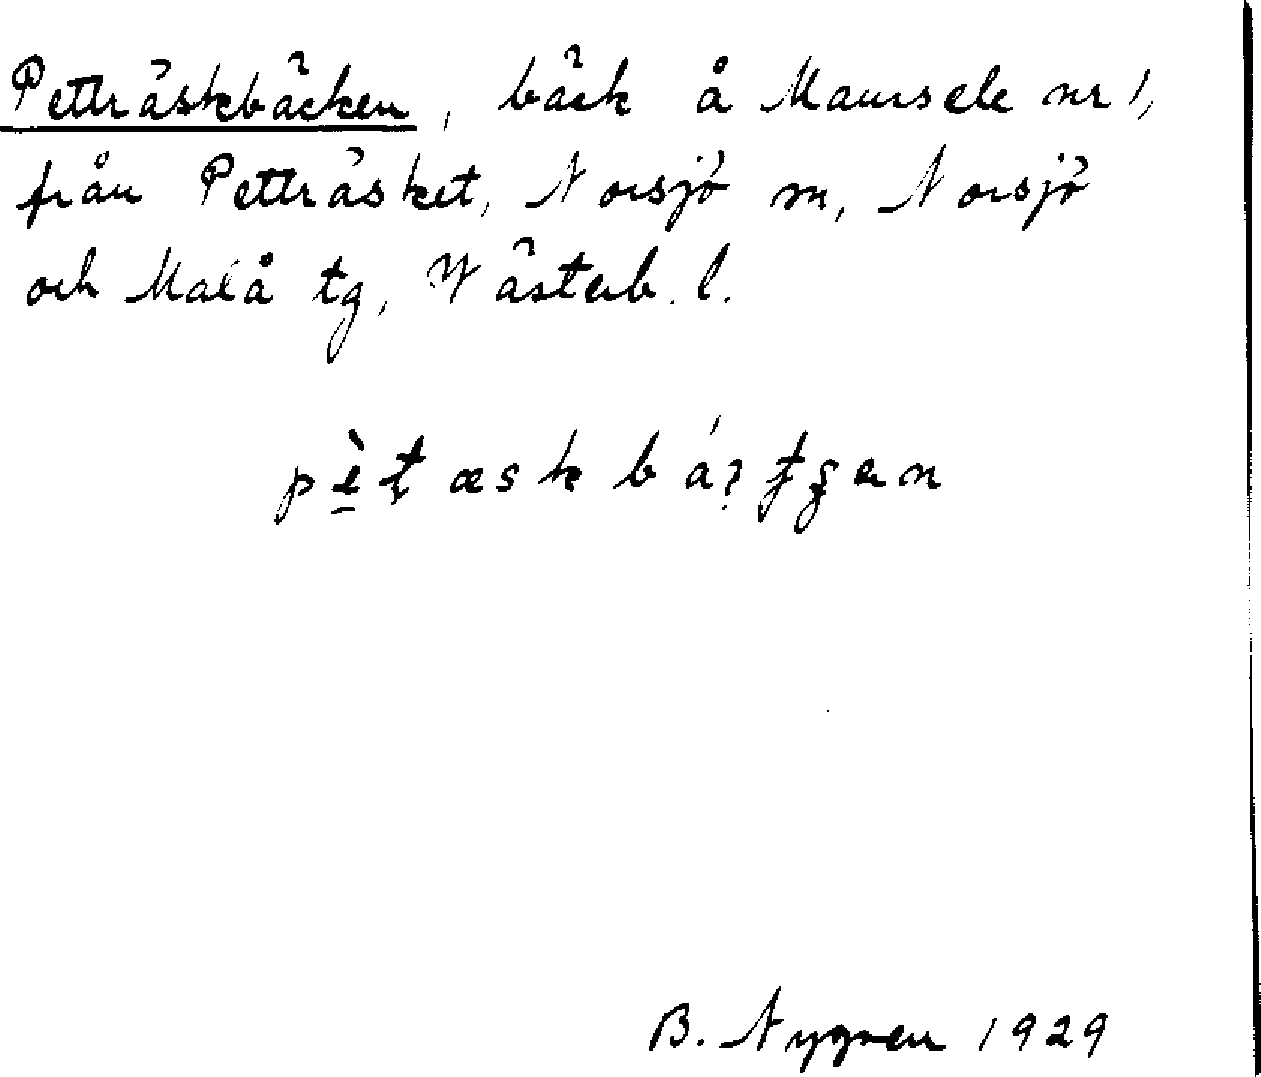 Petträskbäcken, bäck å Maursele nr 1,
från Petträsket, Norsjö sn, Norsjö
och Malå tg, Västerb. l.
B. Nygren 1929